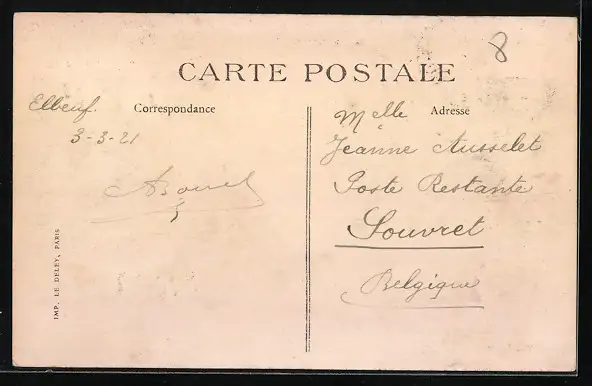 8
CARTE POSTALE
Elbeuf.
Correspondance
3-3-21
Melle
Adresse
Jeanne Ausselet
Poste Restante
Souvret
Belgique
IMP. LE DELEY, PARIS